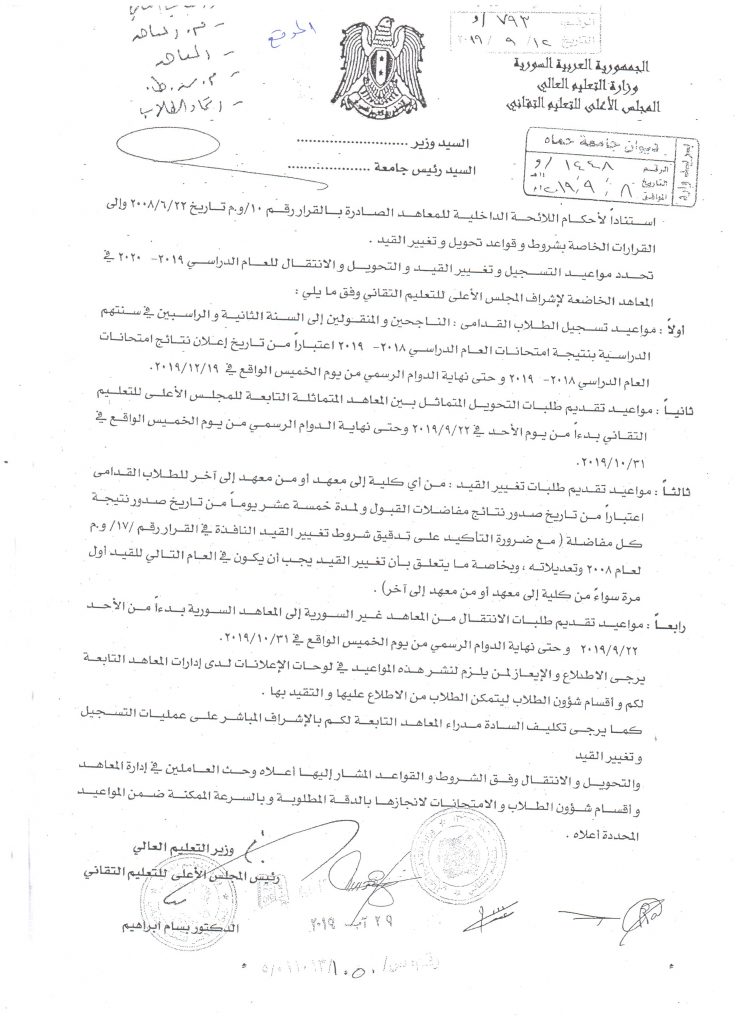 الرقم ٧٩٣/و
التاريخ ٢٠١٩/٩/١٢
الموقع
- م. المعاهد
- المعاهد
- اتحاد الطلاب
الجمهورية العربية السورية
وزارة التعليم العالي
المجلس الأعلى للتعليم التقاني
بريد وارد
ديوان جامعة حماه
الرقم ١٤٤٨/و
التاريخ
الموافق ٢٠١٩/٩/٨
السيد وزير ..........................
السيد رئيس جامعة ....................
استناداً لأحكام اللائحة الداخلية للمعاهد الصادرة بالقرار رقم ١٠/و.م تاريخ ٢٠٠٨/٦/٢٢ وإلى
القرارات الخاصة بشروط و قواعد تحويل و تغيير القيد .
تحدد مواعيد التسجيل و تغيير القيد و التحويل و الانتقال للعام الدراسي ٢٠١٩- ٢٠٢٠ في
المعاهد الخاضعة لإشراف المجلس الأعلى للتعليم التقاني وفق ما يلي :
أولاً : مواعيد تسجيل الطلاب القدامى : الناجحين و المنقولين إلى السنة الثانية و الراسبين في سنتهم
الدراسية بنتيجة امتحانات العام الدراسي ٢٠١٨- ٢٠١٩ اعتباراً من تاريخ إعلان نتائج امتحانات
العام الدراسي ٢٠١٨- ٢٠١٩ و حتى نهاية الدوام الرسمي من يوم الخميس الواقع في ٢٠١٩/١٢/١٩.
ثانياً : مواعيد تقديم طلبات التحويل المتماثل بين المعاهد المتماثلة التابعة للمجلس الأعلى للتعليم
التقاني بدءاً من يوم الأحد في ٢٠١٩/٩/٢٢ وحتى نهاية الدوام الرسمي من يوم الخميس الواقع في
٢٠١٩/١٠/٣١.
ثالثاً : مواعيد تقديم طلبات تغيير القيد : من أي كلية إلى معهد أو من معهد إلى آخر للطلاب القدامى
اعتباراً من تاريخ صدور نتائج مفاضلات القبول و لمدة خمسة عشر يوماً من تاريخ صدور نتيجة
كل مفاضلة ( مع ضرورة التأكيد على تدقيق شروط تغيير القيد النافذة في القرار رقم /١٧/ و.م
لعام ٢٠٠٨ وتعديلاته ، وبخاصة ما يتعلق بأن تغيير القيد يجب أن يكون في العام التالي للقيد أول
مرة سواءً من كلية إلى معهد أو من معهد إلى آخر) .
رابعاً : مواعيد تقديم طلبات الانتقال من المعاهد غير السورية إلى المعاهد السورية بدءاً من الأحد
٢٠١٩/٩/٢٢ و حتى نهاية الدوام الرسمي من يوم الخميس الواقع في ٢٠١٩/١٠/٣١.
يرجى الاطلاع و الإيعاز لمن يلزم لنشر هذه المواعيد في لوحات الإعلانات لدى إدارات المعاهد التابعة
لكم و أقسام شؤون الطلاب ليتمكن الطلاب من الاطلاع عليها و التقيد بها .
كما يرجى تكليف السادة مدراء المعاهد التابعة لكم بالإشراف المباشر على عمليات التسجيل
و تغيير القيد
والتحويل و الانتقال وفق الشروط و القواعد المشار إليها أعلاه وحث العاملين في إدارة المعاهد
و أقسام شؤون الطلاب و الامتحانات لانجازها بالدقة المطلوبة و بالسرعة الممكنة ضمن المواعيد
المحددة أعلاه .
وزير التعليم العالي
رئيس المجلس الأعلى للتعليم التقاني
الدكتور بسام ابراهيم
٢٩ آب ٢٠١٩